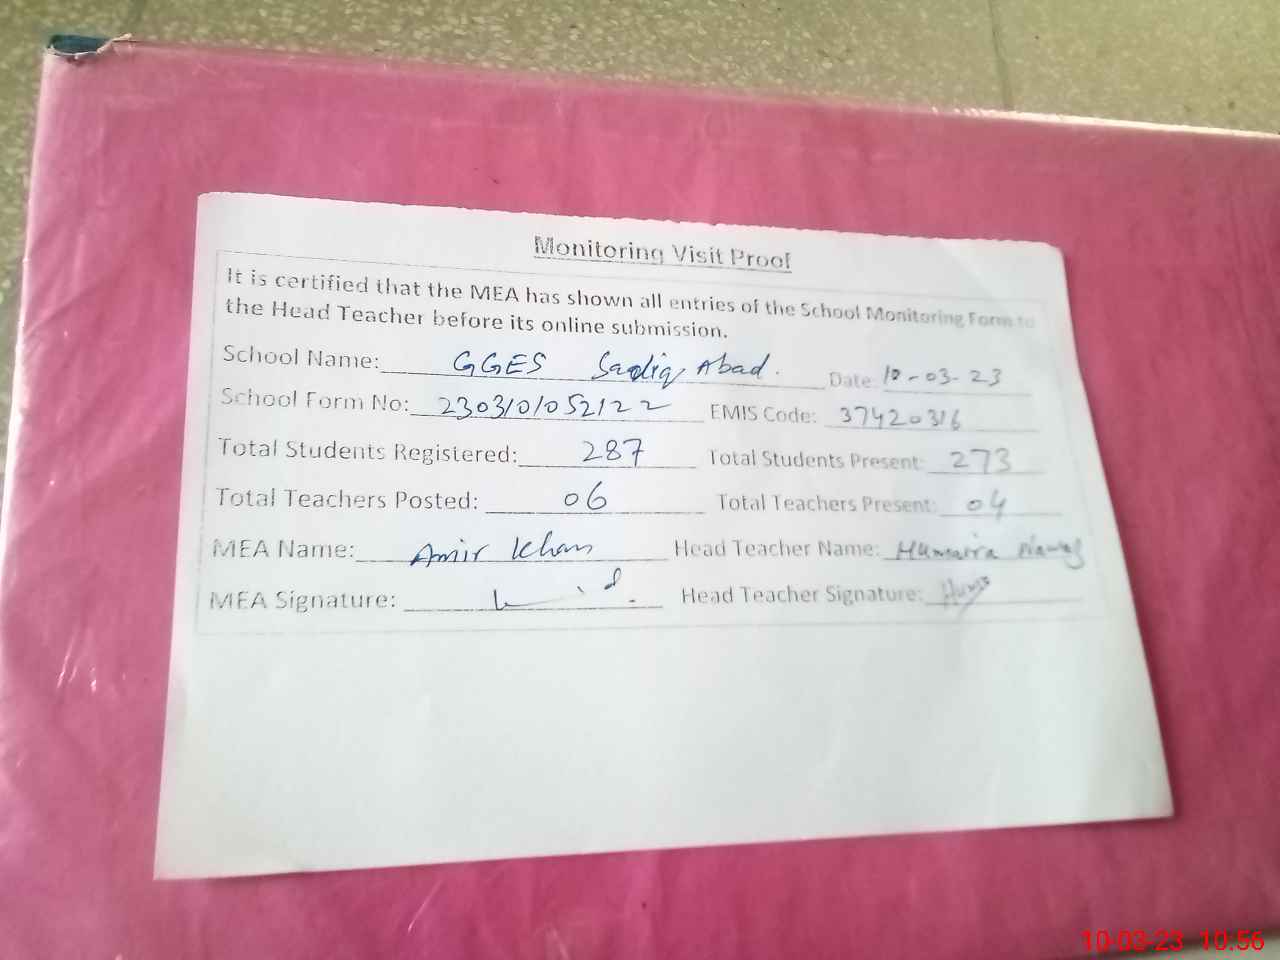 Monitoring Visit Proof
It is certified that the MEA has shown all entries of the School Monitoring Form to
the Head Teacher before its online submission.
School Name: GGES Sadiq Abad. Date: 10-03-23
School Form No: 230310105212 2 EMIS Code: 37420316
Total Students Registered: 287 Total Students Present: 273
Total Teachers Posted: 06 Total Teachers Present: 04
MEA Name: Amir Khan Head Teacher Name: Humaira Nawaz
MEA Signature: Head Teacher Signature:
10-03-23 10:56